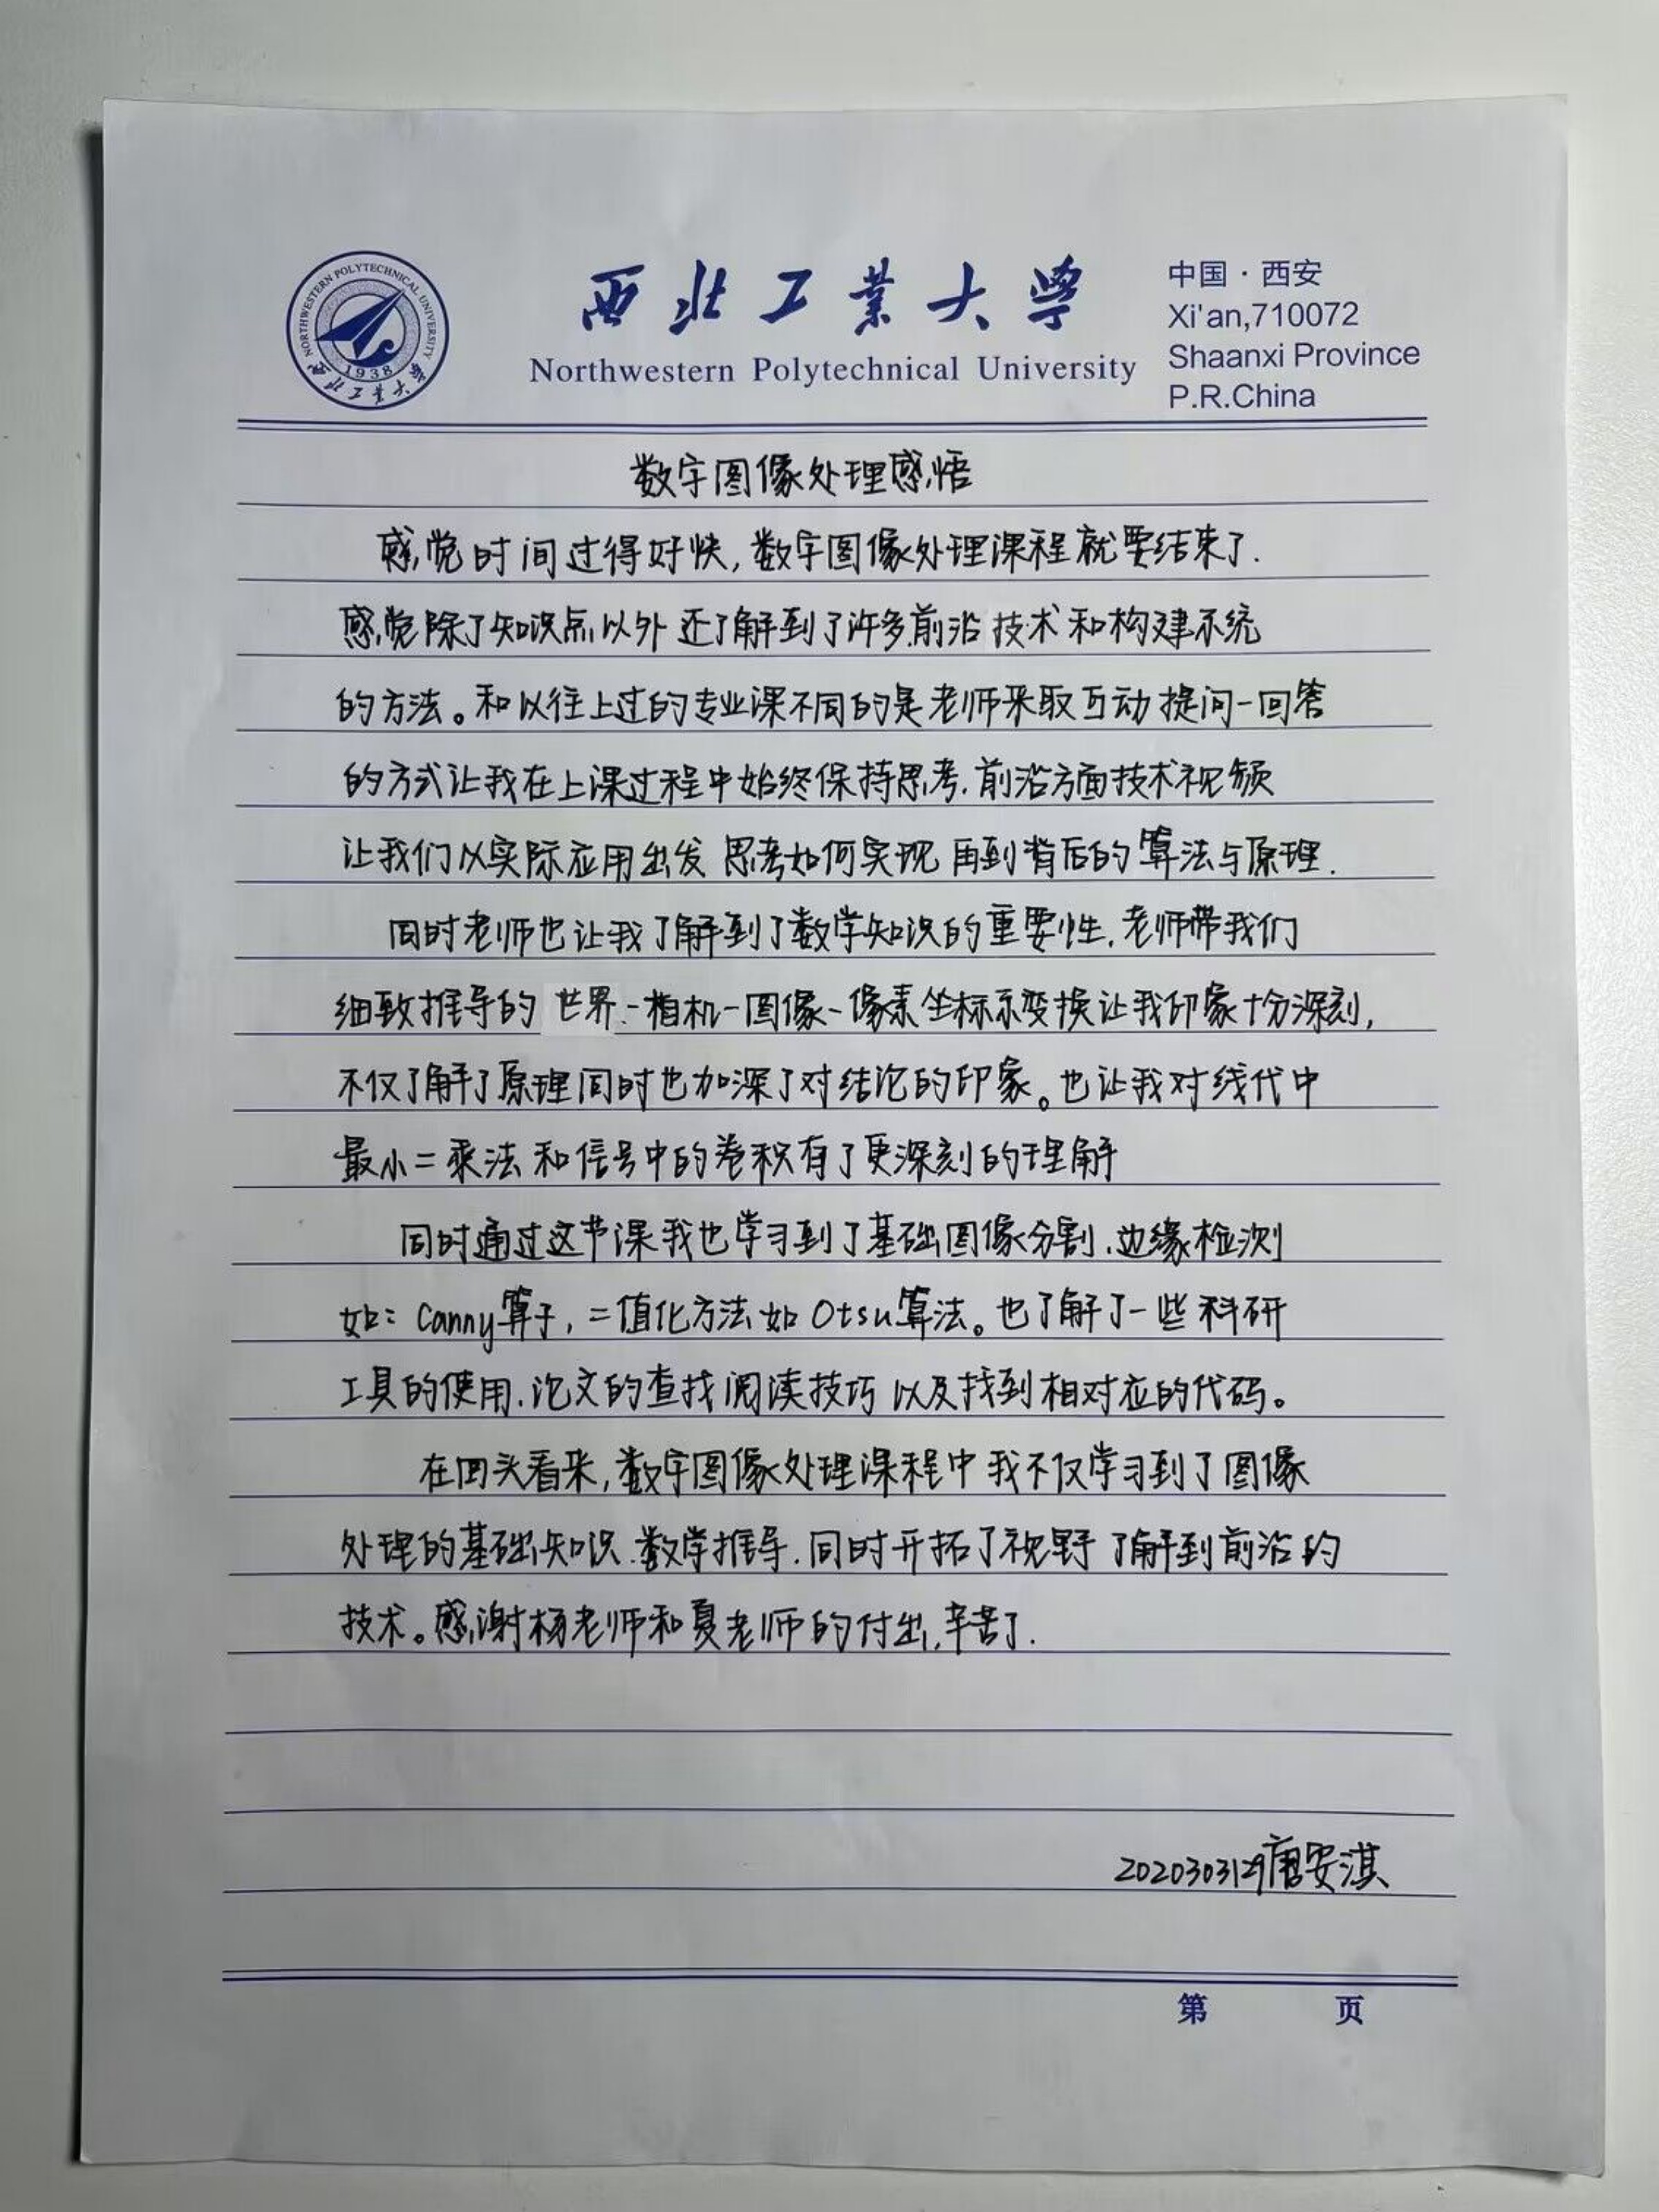 NORTHWESTERN POLYTECHNICAL UNIVERSITY
1938
西北工业大学
西北工业大学
Northwestern Polytechnical University
中国·西安
Xi'an,710072
Shaanxi Province
P.R.China
数字图像处理感悟
感觉时间过得好快,数字图像处理课程就要结束了.
感觉除了知识点以外还了解到了许多前沿技术和构建系统
的方法。和以往上过的专业课不同的是老师采取互动提问-回答
的方式让我在上课过程中始终保持思考.前沿方面技术视频
让我们从实际应用出发 思考如何实现 再到背后的算法与原理.
同时老师也让我了解到了数学知识的重要性.老师带我们
细致推导的世界-相机-图像-像素坐标系变换让我印象十分深刻,
不仅了解了原理同时也加深了对结论的印象。也让我对线代中
最小二乘法和信号中的卷积有了更深刻的理解
同时通过这节课我也学习到了基础图像分割.边缘检测
如:Canny算子,二值化方法如Otsu算法。也了解了一些科研
工具的使用.论文的查找阅读技巧以及找到相对应的代码。
在回头看来,数字图像处理课程中我不仅学习到了图像
处理的基础知识.数学推导.同时开拓了视野 了解到前沿的
技术。感谢杨老师和夏老师的付出,辛苦了.
2020303129唐安淇
第 页